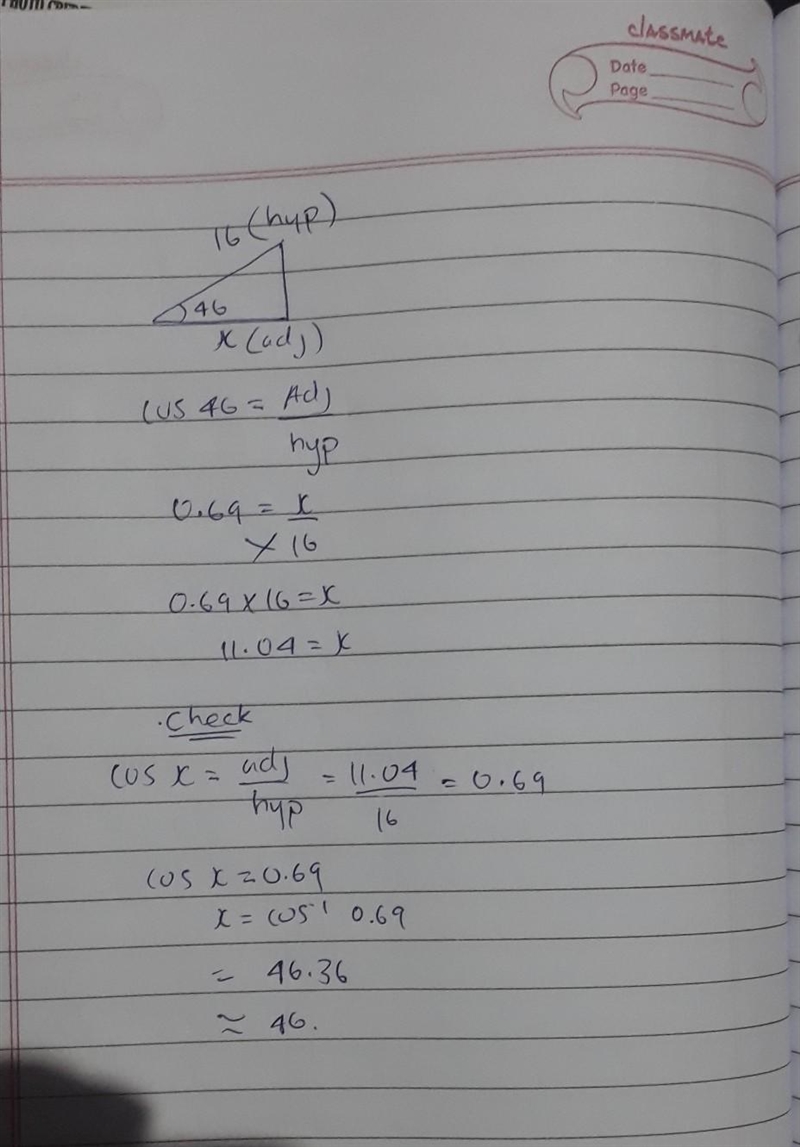 classmate
Date
Page
16 (hyp)
46
x (adj)
cos 46 = Adj
hyp
0.69 = x
16
0.69 × 16 = x
11.04 = x
. Check
cos x = adj = 11.04 = 0.69
hyp 16
cos x = 0.69
x = cos⁻¹ 0.69
= 46.36
≈ 46.